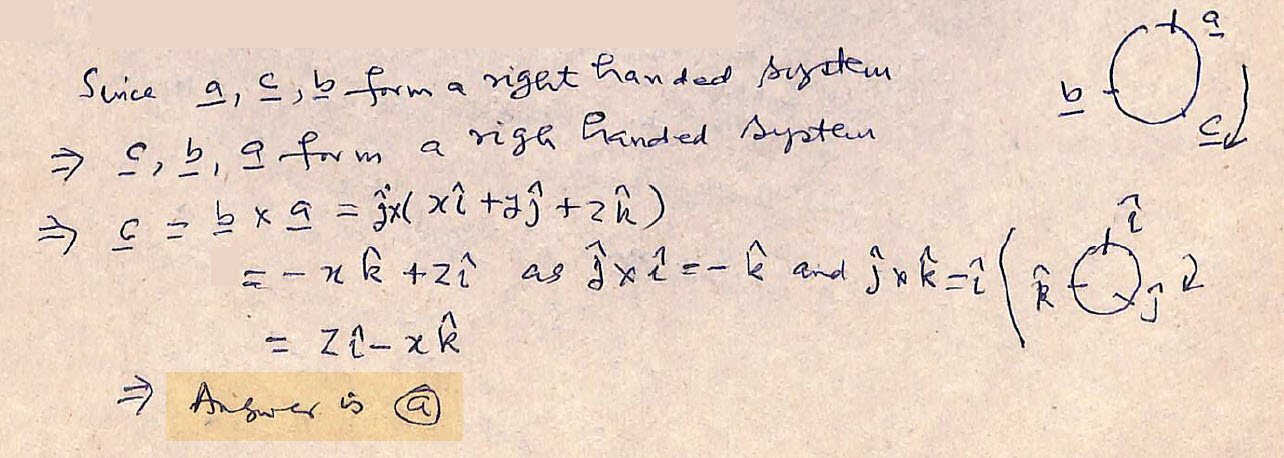 Since a, c, b form a right handed system
⇒ c, b, a form a righ handed system
⇒ c = b × a = ĵ×( xî + yĵ + zk̂ )
= - x k̂ + zî as ĵ × î = - k̂ and ĵ × k̂ = î
= zî - xk̂
⇒ Answer is ⓐ
a
b
c
î
k̂
ĵ